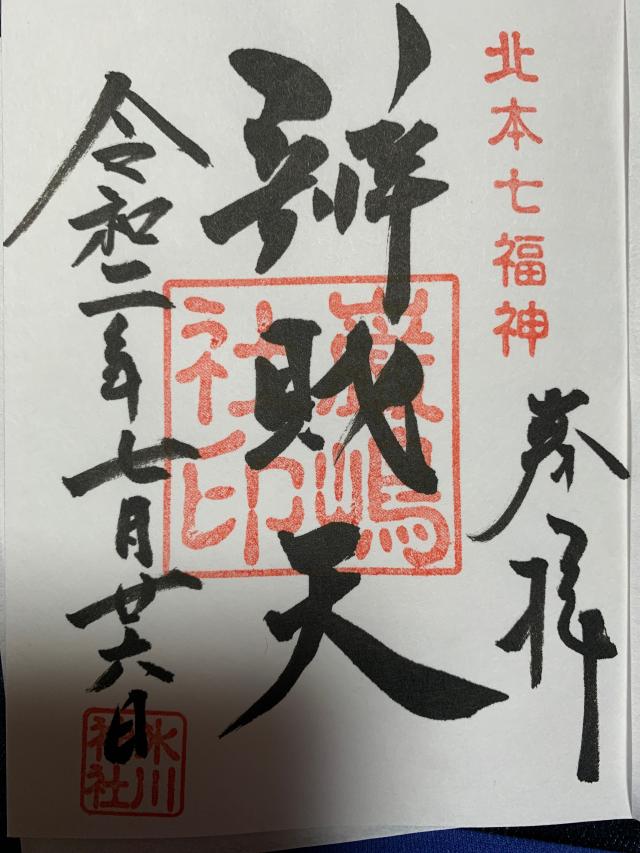 北本七福神
奉拝
辨財天
嚴嶋
社印
令和二年七月廿六日
氷川
神社